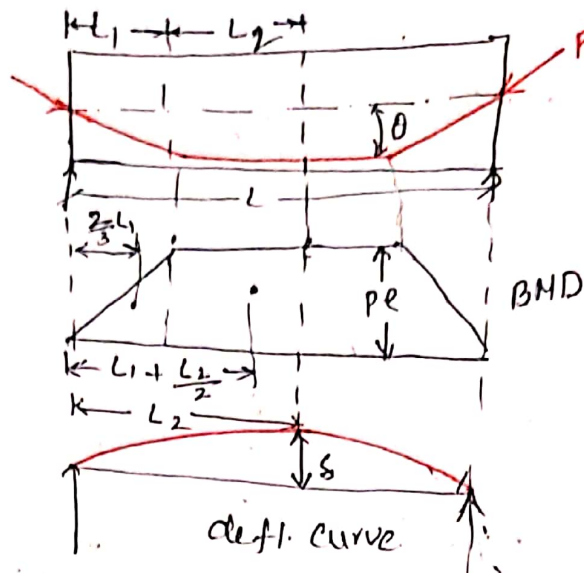 L₁ L₂
P
θ
L
2/3 L₁
Pe
BMD
L₁ + L₂/2
L₂
δ
defl. curve